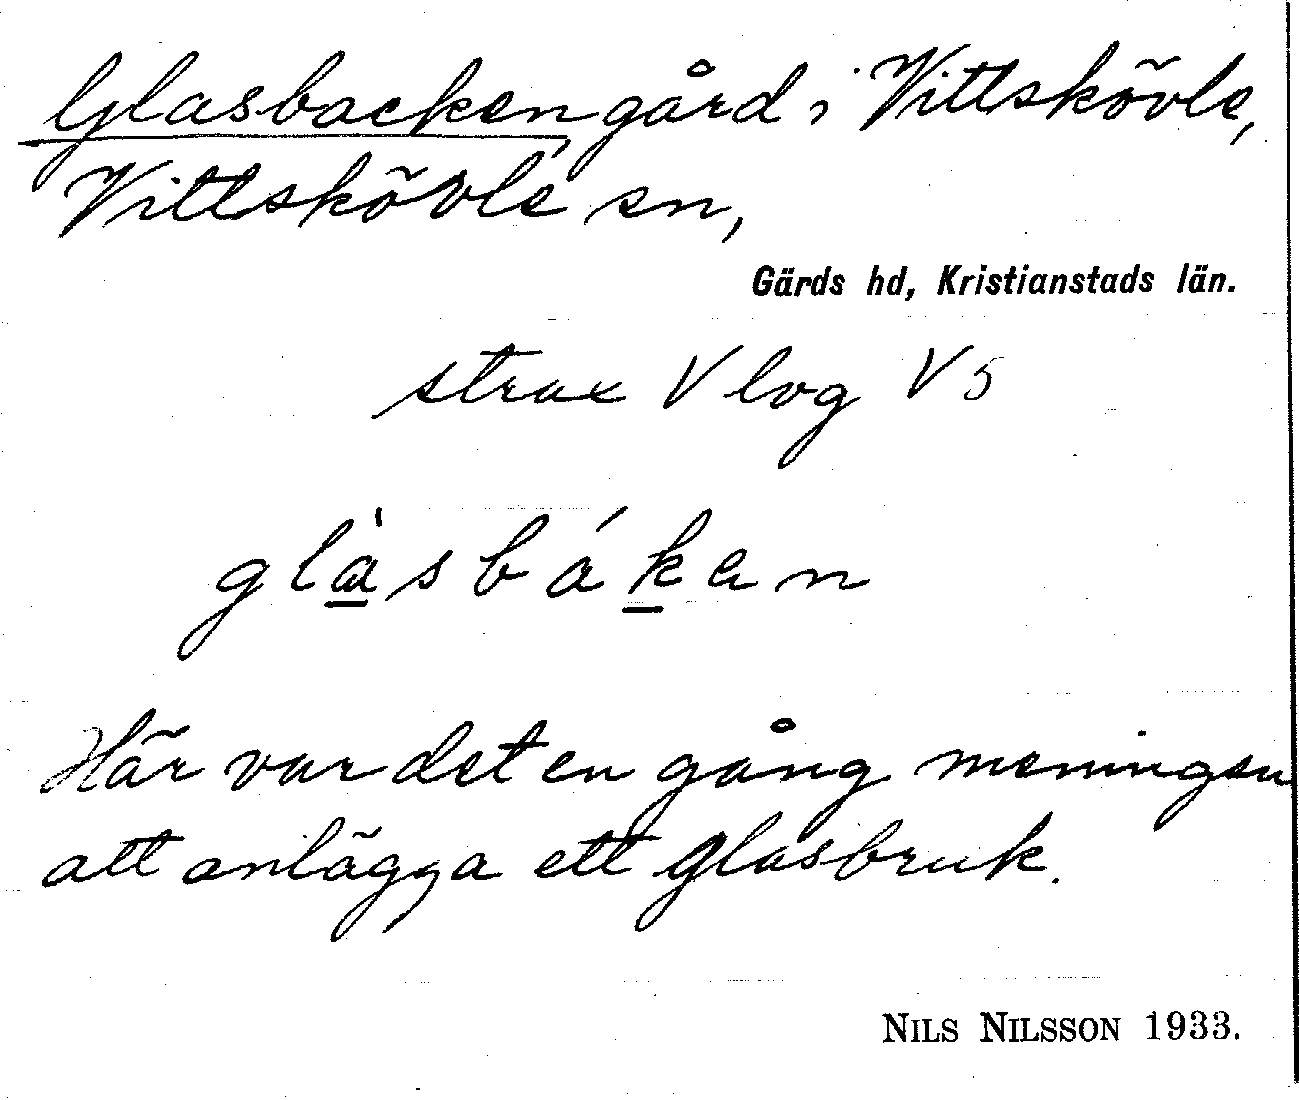 Glasbacken, gård i Vittskövle,
Vittskövle sn,
Gärds hd, Kristianstads län.
strax V log V 5
glàsbáken
Här var det en gång meningen
att anlägga ett glasbruk.
NILS NILSSON 1933.